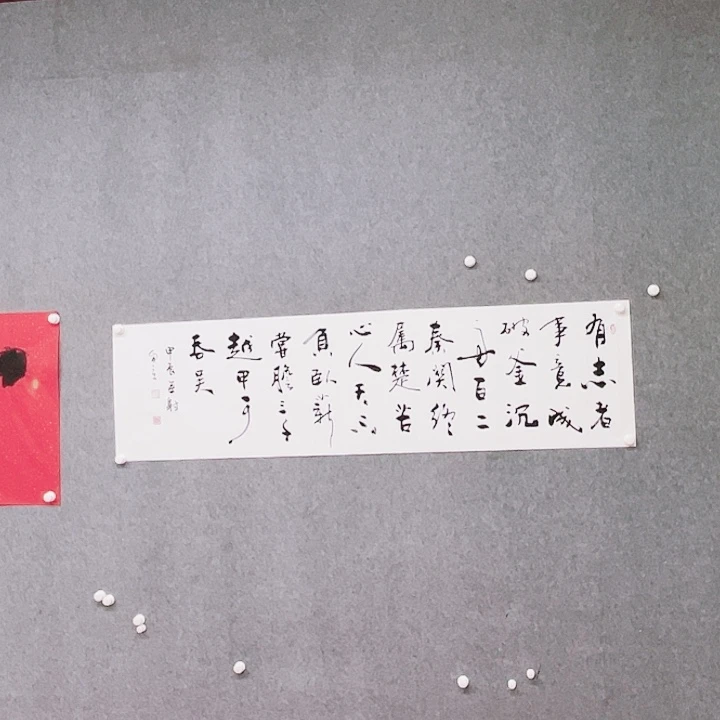 有志者
事竟成
破釜沉
舟百二
秦关终
属楚苦
心人天不
负卧薪
尝胆三千
越甲可
吞吴
甲辰